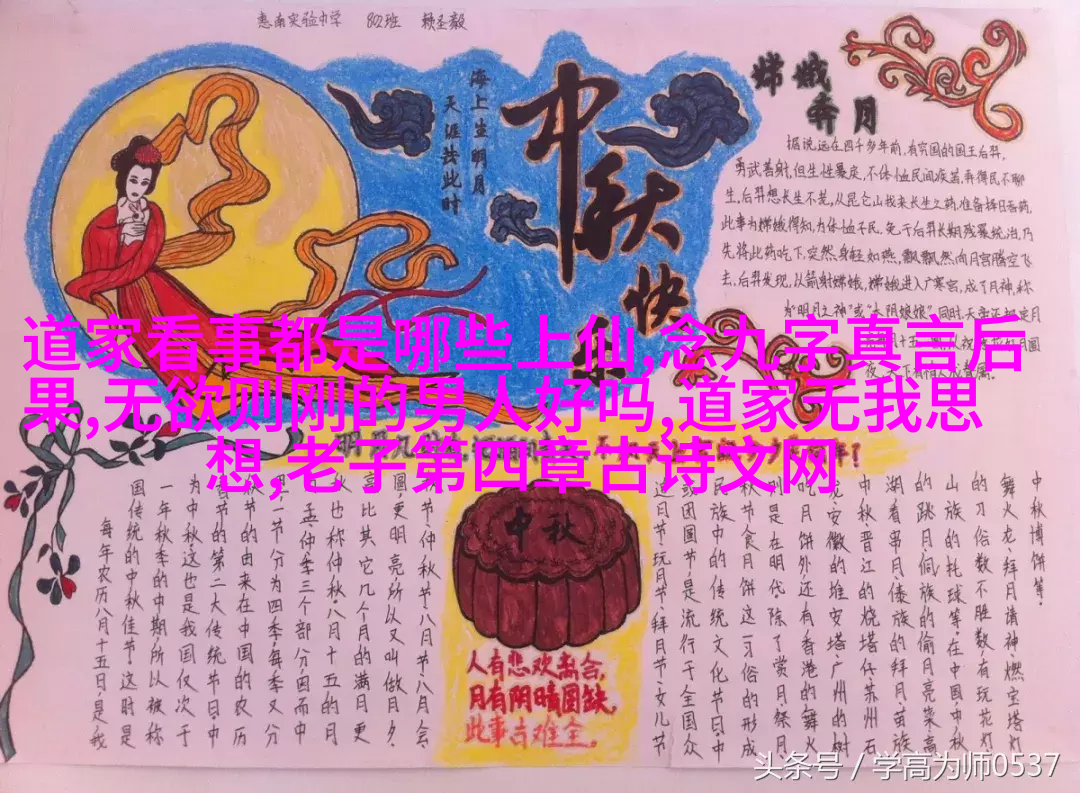 惠南实验中学 802班 赖圣毅
海上生明月
天涯共此时
中秋快乐
嫦娥
奔月
据说,远在四千多年前,有穷国的国王后羿,
勇武善射,但生性暴戾,不体恤民间疾苦,弄得民不聊
生,后羿想长生不老,从昆仑山找来长生之药,准备择日吞药,
此事为嫦娥得知,为体恤平民,免于后羿长期残暴统治,乃
先将此药吃下,突然身轻如燕,飘飘然向月宫腾空飞
去,后羿发现,以箭射嫦娥,嫦娥进入广寒宫,成了月神,称
为“明月之神”或“太阴娘娘”
道家看事都是哪些上仙,念九字真言后
果,无欲则刚的男人好吗,道家无我思
想,老子第四章古诗文网
每年农历八月十五日,是我
国传统的中秋佳节。这时是
一年秋季的中期,所以被称
为中秋,这也是我国仅次于
春节的第二大传统节日,中
节的由来在中国的农历
里,一节分为四季,每季又分
孟、仲、季三个部分,因而中
秋也称仲秋。八月十五的月
亮比其它几个月的满月更
圆,更明亮,所以又叫做月夕
秋节、仲秋节、八月节、八月会
中秋
人有悲欢离合,
月有阴晴圆缺,
此事古难全。
追月节、玩月节、拜月节、女儿节
或团圆节,是流行于全国众
民族中的传统文化节日,中
秋节食月饼这一习俗的形成
则是在明代除了赏月、祭月、
吃月饼外还有香港的舞火
龙、安徽的堆安塔、广州的树
中秋、晋江的烧塔仔、苏州石
湖看串月、傣族的拜月、苗族
的跳月、侗族的偷月亮菜、高
山族的托球等,在中国,中秋
的习俗数不胜数,有玩花灯、
舞火龙、拜月请神、燃宝塔灯、
中秋博饼等。
头条号 / 学高为师0537